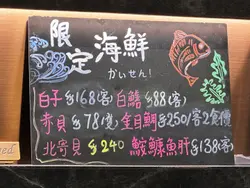 限定海鮮
かいせん!
白子 $168(客) 白鱔 $88(客)
赤貝 $78(客) 金目鯛 $250/客2食價
北寄貝 $240 鮟鱇魚肝 $138(客)